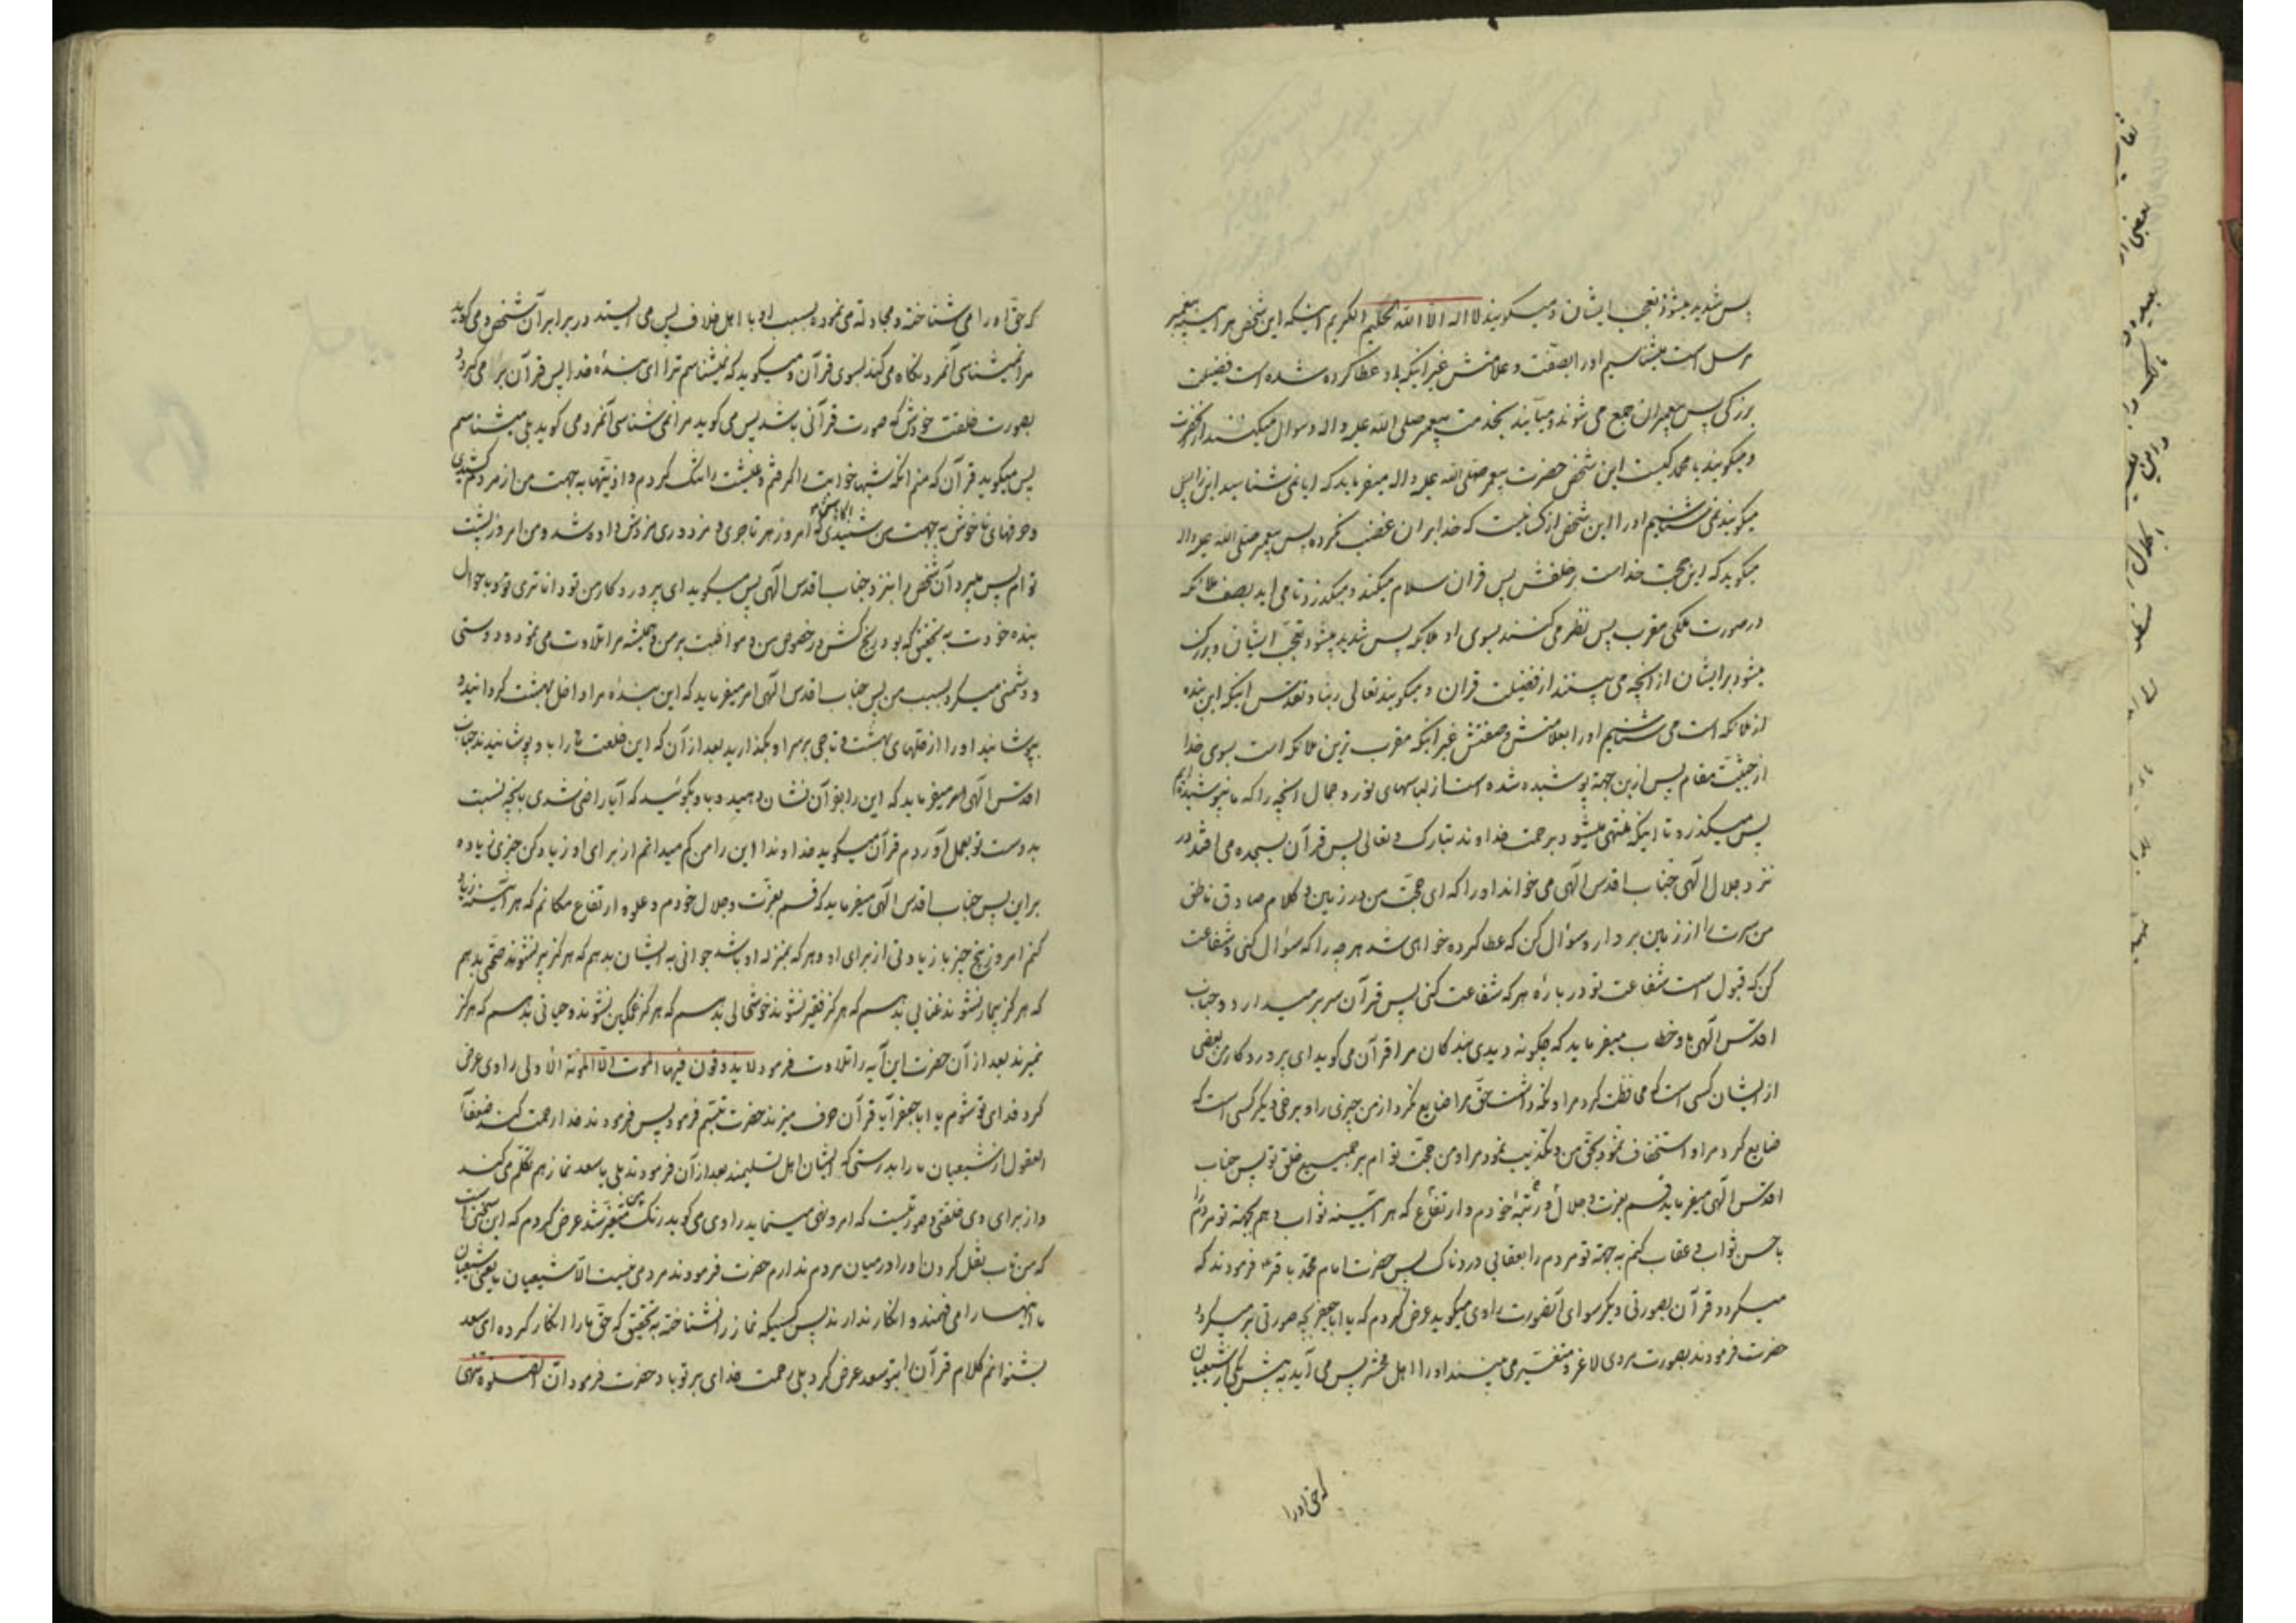 پس شدید میشود تعجب ایشان و میگویند لا اله الا الله الحکیم الکریم اینکه این شخص هر آینه پیغمبر
مرسل است میشناسیم او را بصفت و علامتش غیر اینکه باو عطا کرده شده است فضیلت
بزرگی پس پیغمبران جمع می شوند و میآیند بخدمت پیغمبر صلی الله علیه و اله و سوال میکنند از آنحضرت
و میگویند یا محمد کیست این شخص حضرت پیغمبر صلی الله علیه و اله میفرماید که ایا نمی شناسید این را پس
میگویند نمی شناسیم او را این شخص از کسانیست که خدا بر ان غضب نکرده پس پیغمبر صلی الله علیه و اله
میگوید که این حجت خداست بر خلقش پس قران سلام میکند و میگذرد تا می اید بصف ملائکه
در صورت ملکی مقرب پس نظر می کنند بسوی او ملائکه پس شدید میشود تعجب ایشان و بزرگ
میشود بر ایشان از آنچه می بینند از فضیلت قران و میگویند تعالی ربنا و تقدس اینکه این بنده
از ملائکه است می شناسیم او را بعلامتش و صفتش غیر اینکه مقرب ترین ملائکه است بسوی خدا
از حیثیت مقام پس ازین جهة پوشیده شده است از لباسهای نور و جمال آنچه را که ما نپوشیده ایم
پس میگذرد تا اینکه منتهی میشود برحمت خداوند تبارک و تعالی پس قرآن بسجده می افتد در
نزد جلال الهی جناب اقدس الهی می خواند او را که ای حجت من در زمین و کلام صادق ناطق
من سرت را از زمین بردار و سؤال کن که عطا کرده خواهی شد هر چه را که سؤال کنی و شفاعت
کن که قبول است شفاعت تو در بارهٔ هر که شفاعت کنی پس قرآن سر بر میدارد و جناب
اقدس الهی باو خطاب میفرماید که چگونه دیدی بندگان مرا قرآن می گوید ای پروردگار من بعضی
از ایشان کسی است که محافظت کرد مرا و نگه داشت حق مرا ضایع نکرد از من چیزی را و برخی دیگر کسی است که
ضایع کرد مرا و استخفاف نمود بحق من و تکذیب نمود مرا و من حجت تو ام بر جمیع خلق تو پس جناب
اقدس الهی میفرماید قسم بعزت و جلال و رتبهٔ خودم و ارتفاع که هر آیینه ثواب دهم بجهة تو مردم را
باحسن ثواب و عقاب کنم به جهة تو مردم را بعقابی دردناک پس حضرت امام محمد باقر ع فرمودند که
میگردد قرآن بصورتی دیگر سوای آنصورت راوی میگوید عرض کردم که یا اباجعفر بچه صورتی بر میگردد
حضرت فرمودند بصورت مردی لاغر و متغیر می بینند او را اهل محشر پس می آید به پیش یکی از شیعیان
که حق او را
که حق او را می شناخته و مجادله می نموده بسبب او با اهل خلاف پس می ایستد در برابر آن شخص و می گوید
مرا نمیشناسی آنمرد نگاه می کند بسوی قرآن و میگوید که نمیشناسم ترا ای بندهٔ خدا پس قرآن بر می گردد
بصورت خلقت خودش که صورت قرآنی باشد پس می گوید مرا نمی شناسی آنمرد می گوید بلی میشناسم
پس میگوید قرآن که منم آنکه شبها خوابت را گرفتم و عیشت را تنگ کردم و اذیتها به جهت من از مردم کشیدی
و حرفهای ناخوش به جهت من شنیدی آگاه باش که امروز هر تاجری و مزدوری مزدش داده شد و من امروز پشت
تو ام پس میبرد آن شخص را بنزد جناب اقدس الهی پس میگوید ای پروردگار من تو داناتری تو و باحوال
بنده خودت به تحقیق که بود رنج کش در خصوص من و مواظبت بر من و همیشه مرا تلاوت می نمود و دوستی
و دشمنی میکرد بسبب من پس جناب اقدس الهی امر میفرماید که این بندهٔ مرا داخل بهشت گردانید و
بپوشانید او را از حلهای بهشت و تاجی بر سر او بگذارید بعد از آن که این خلعت ها را باو پوشانیدند جناب
اقدس الهی امر میفرماید که این را بقرآن نشان دهید و باو بگوئید که آیا راضی شدی بآنچه نسبت
بدوست تو بعمل آوردم قرآن میگوید خداوندا این را من کم میدانم از برای او زیاد کن چیزی زیاده
بر این پس جناب اقدس الهی میفرماید که قسم بعزت و جلال خودم و علو و ارتفاع مکانم که هر آینه زیاد
کنم امروز پنج چیز با زیادتی از برای او و هر که بمنزله او باشد جوانی به ایشان بدهم که هرگز پیر نشوند صحتی بدهم
که هرگز بیمار نشوند غنایی بدهم که هرگز فقیر نشوند خوشحالی بدهم که هرگز غمگین نشوند و حیاتی بدهم که هرگز
نمیرند بعد از آن حضرت این آیه را تلاوت فرمود لا یذوقون فیها الموت الا الموتة الاولی راوی عرض
کرد فدای تو شوم یا اباجعفر آیا قرآن حرف میزند حضرت تبسم فرمود پس فرمودند خدا رحمت کند ضعفآ
العقول از شیعیان ما را بدرستی که ایشان اهل تسلیمند بعد از آن فرمودند بلی یا سعد نماز هم تکلم می کند
و از برای وی خلقتی و صورتیست که امر و نهی مینماید راوی می گوید رنگ من متغیر شد عرض کردم که این سخنی است
که من تاب نقل کردن او را در میان مردم ندارم حضرت فرمودند مردمی نیست الا شیعیان ما یعنی شیعیان
ما اینها را می فهمند و انکار ندارند پس کسیکه نماز را نشناخته به تحقیق که حق ما را انکار کرده ای سعد
بشنوانم کلام قرآن را بتو سعد عرض کرد بلی رحمت خدای بر تو باد حضرت فرمود ان الصلوة تنهی